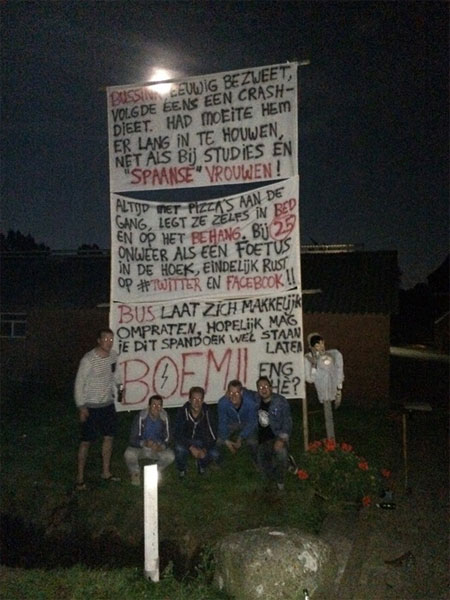 BUSSINK, EEUWIG BEZWEET,
VOLGDE EENS EEN CRASH-
DIEET. HAD MOEITE HEM
ER LANG IN TE HOUWEN,
NET ALS BIJ STUDIES EN
"SPAANSE" VROUWEN!
ALTIJD MET PIZZA'S AAN DE
GANG, LEGT ZE ZELFS IN BED
EN OP HET BEHANG. BIJ 25
ONWEER ALS EEN FOETUS
IN DE HOEK, EINDELIJK RUST
OP #TWITTER EN FACEBOOK!!
BUS LAAT ZICH MAKKELIJK
OMPRATEN, HOPELIJK MAG
JE DIT SPANDOEK WEL STAAN
LATEN
BOEM!! ENG
HÈ?